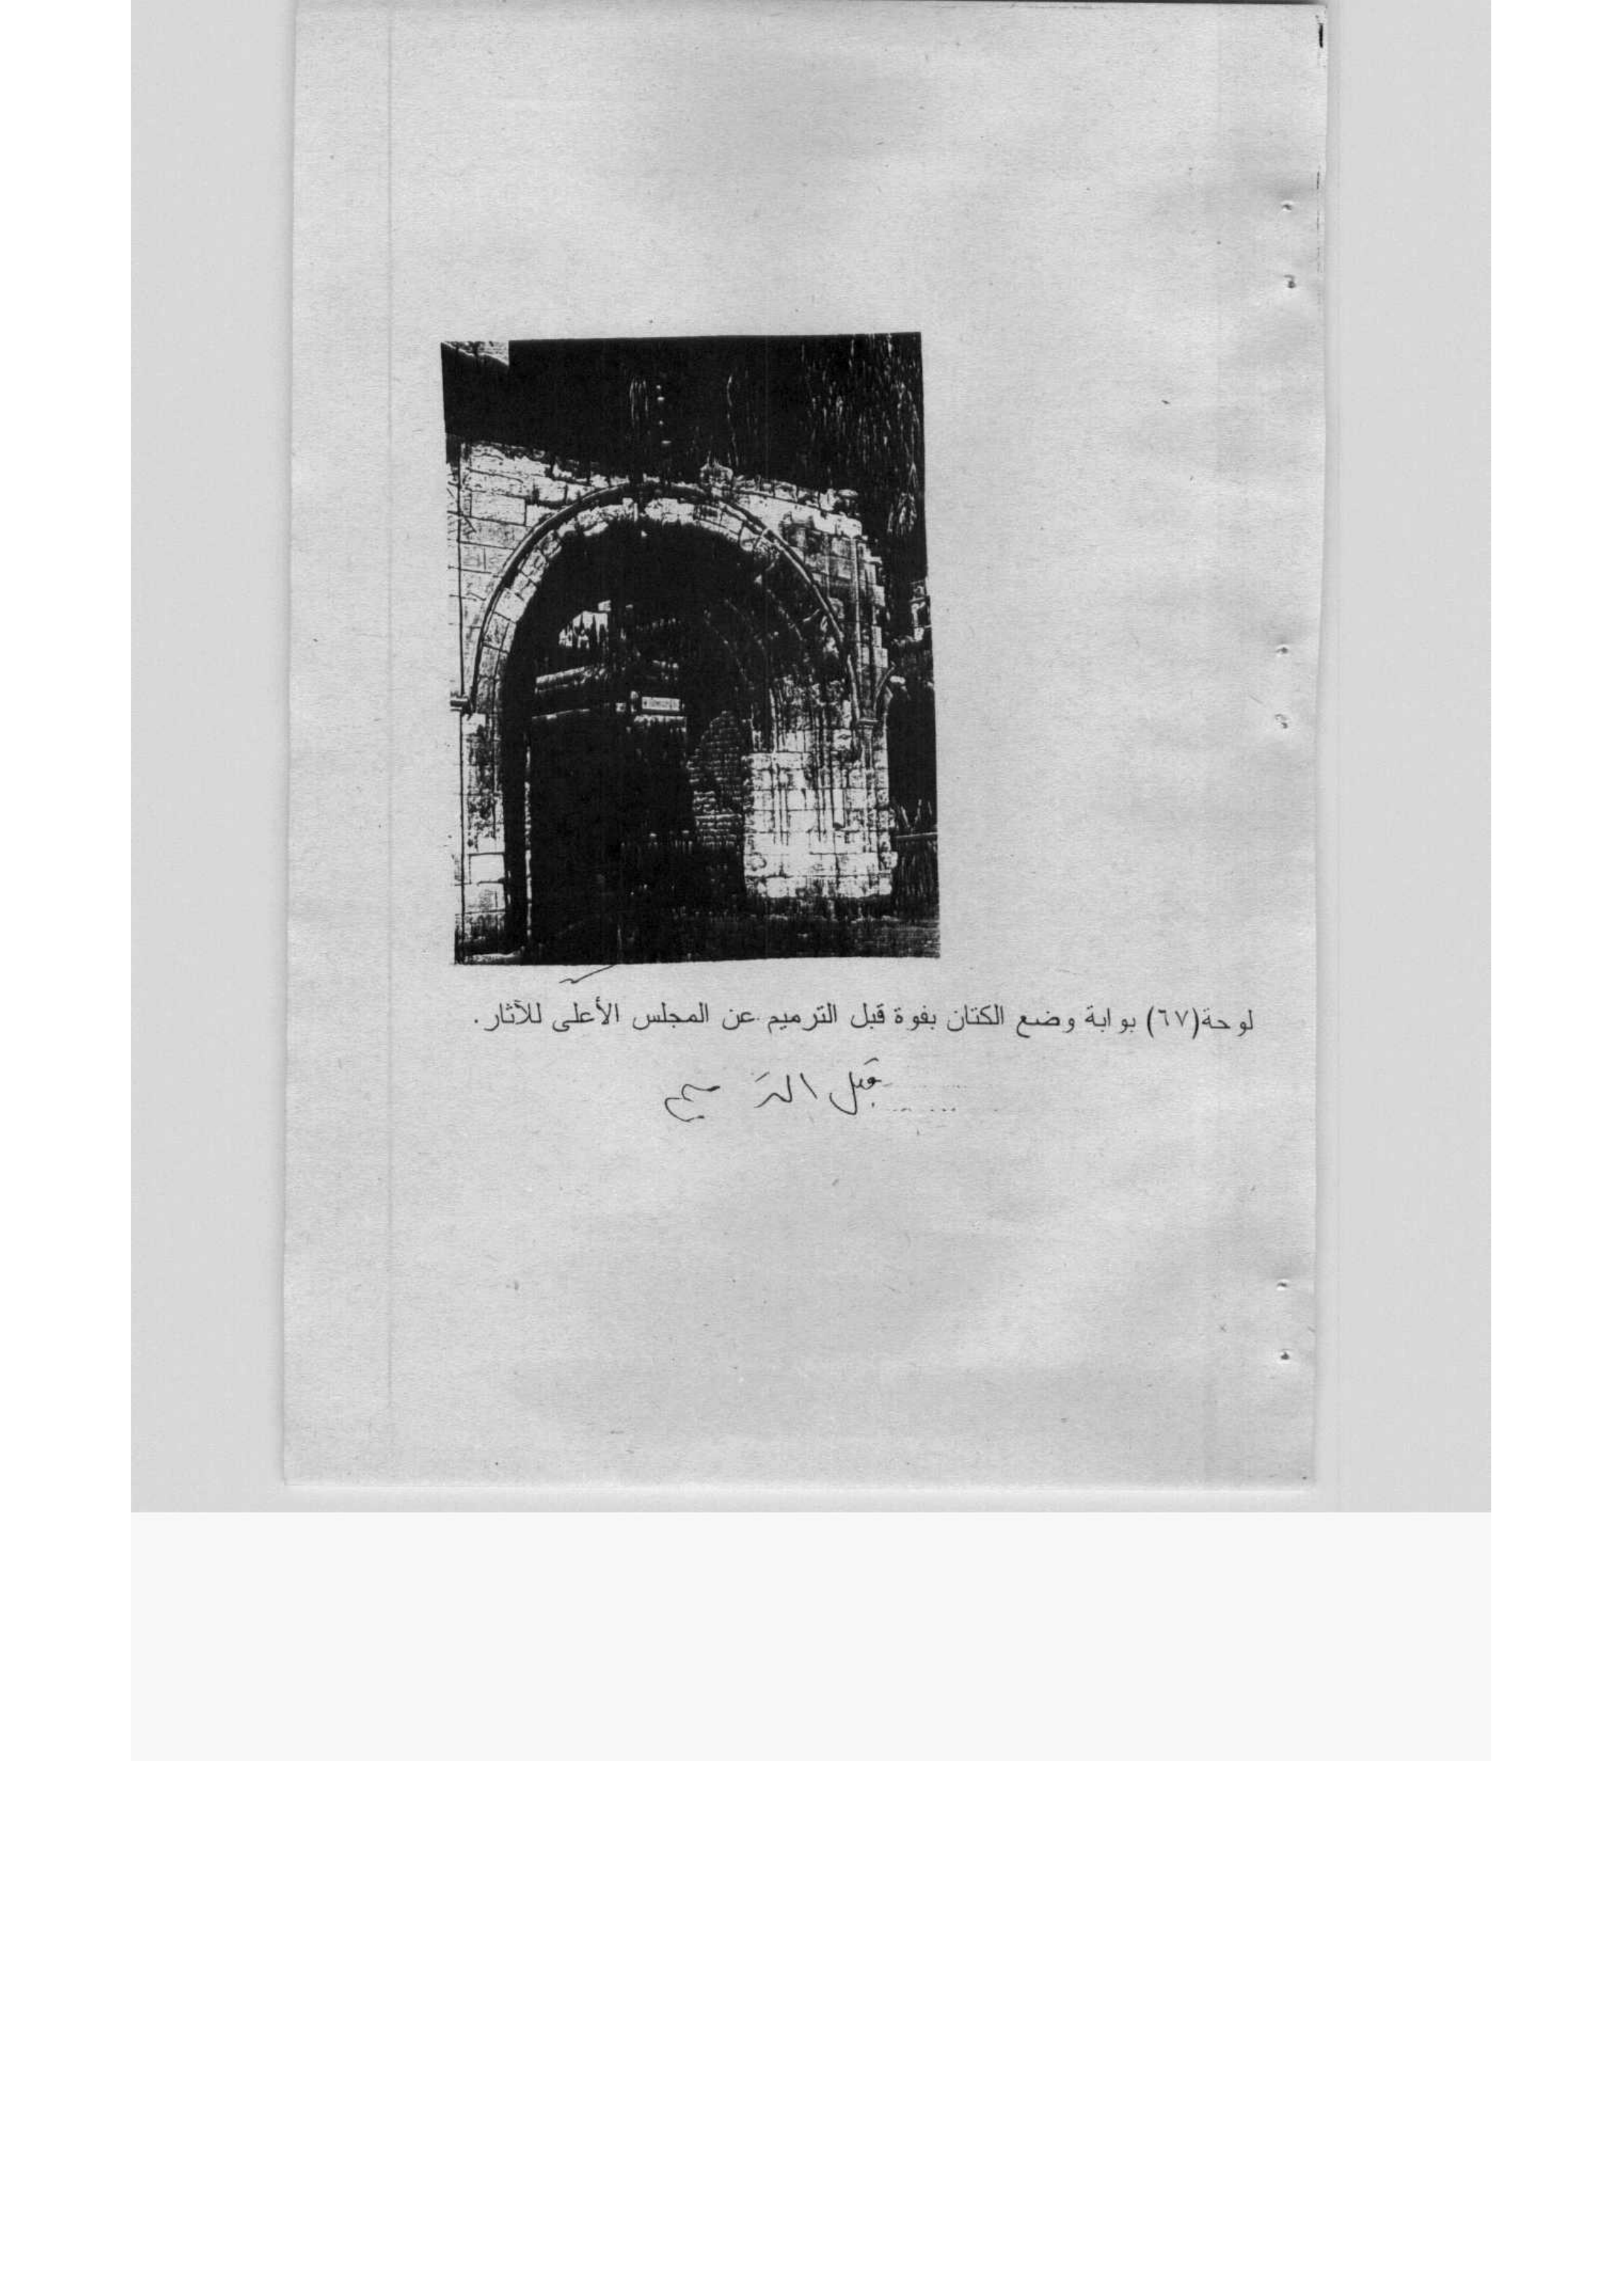 لوحة(٦٧) بوابة وضع الكتان بفوة قبل الترميم عن المجلس الأعلى للآثار.
قبل الترميم